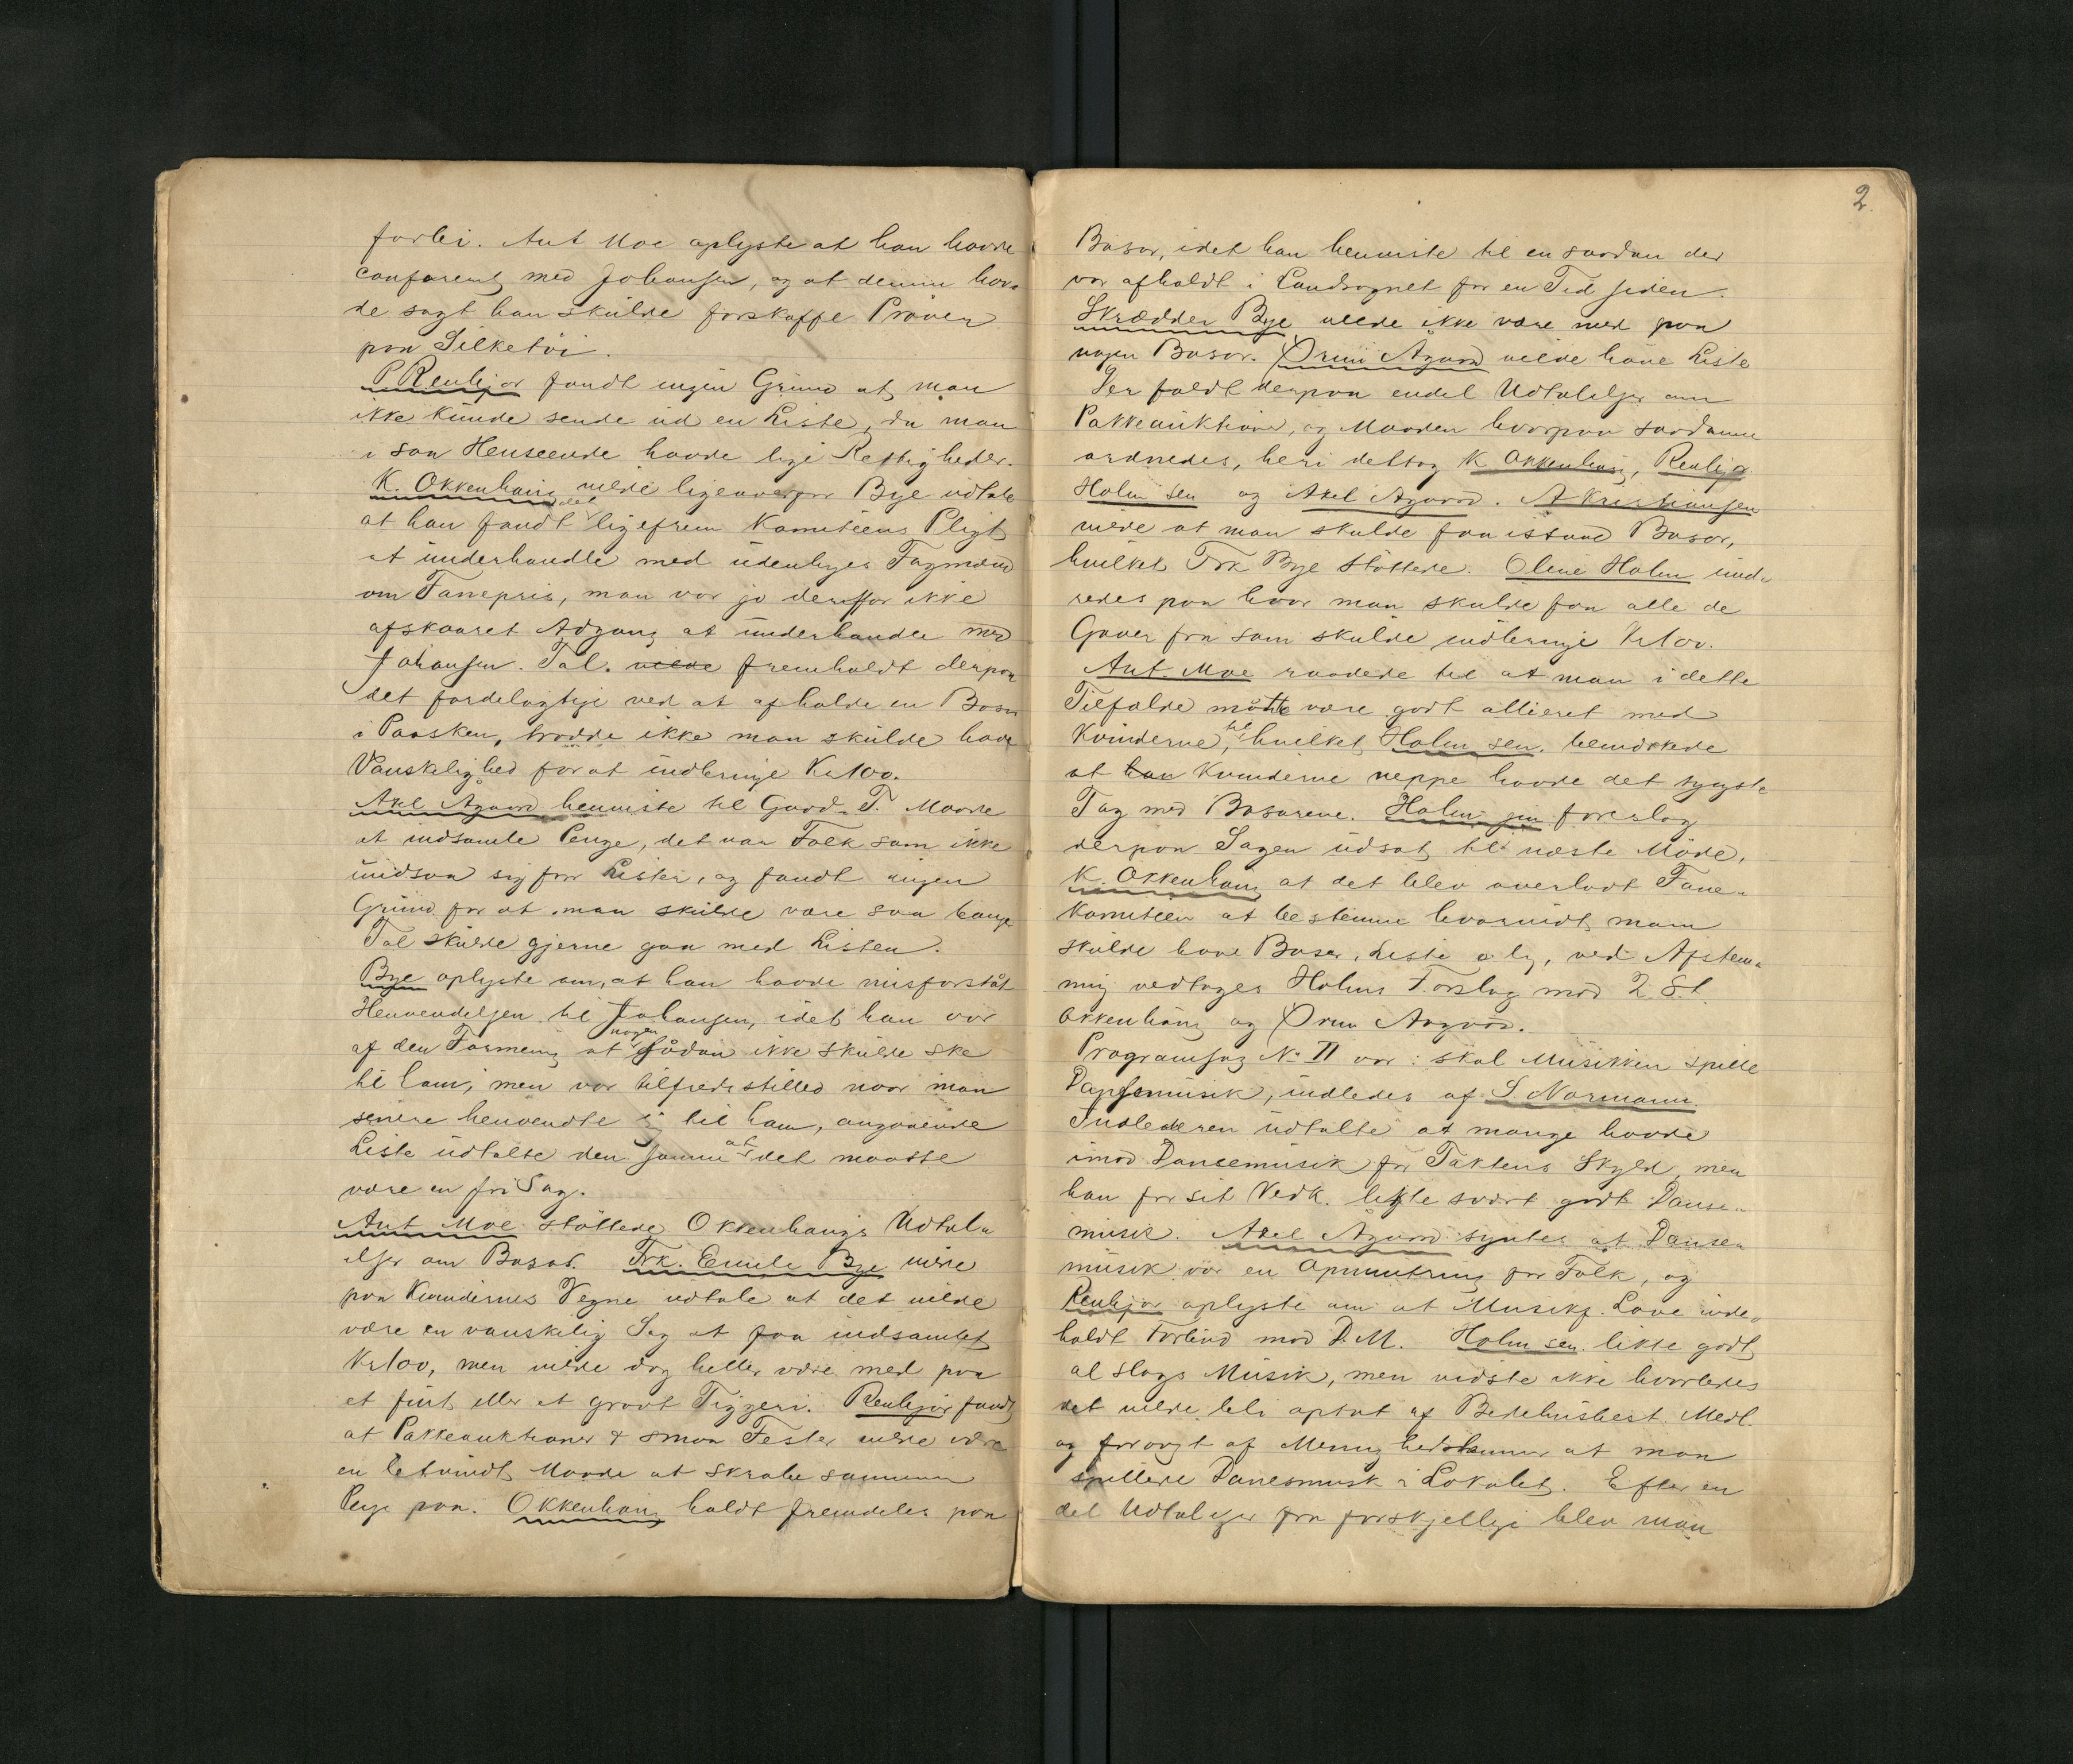 forbi. Ant Moe oplyste at han havde
confereret med Johansen, og at denne hav-
de sagt han skulde forskaffe Prøver
paa Silketøi.
P Renbjør fandt ingen Grund at man
ikke kunde sende ud en Liste, da man
i saa Henseende havde lige Rettigheder.
K. Okkenhaug vilde ligeoverfor Bye udtale
at han fandt det ligefrem Komiteens Pligt
at underhandle med udenbyes Fagmænd
om Fanepris, man var jo derfor ikke
afskaaret Adgang at underhandle med
Johansen. Tal. vilde fremholdt derpaa
det fordelagtige ved at afholde en Basar
i Paasken, trodde ikke man skulde have
Vanskelighed for at indbringe Kr 100.
Axl Agaard henviste til Good. T. Maade
at indsamle Penge, det var Folk som ikke
undsaa sig for Lister, og fandt ingen
Grund for at man skulde være saa bange
Tal skulde gjerne gaa med Listen.
Bye oplyste om, at han havde misforstået
Henvendelsen til Johansen, idet han var
af den Formening at nogen sådan ikke skulde ske
til ham, men var tilfredsstilled naar man
senere henvendte sig til ham, angaaende
Liste udtalte den samme at det maatte
være en fri Sag.
Ant Moe støttede Okkenhaugs Udtal-
elser om Basar. Frk. Emile Bye vilde
paa Kvindernes Vegne udtale at det vilde
være en vanskelig Sag at faa indsamlet
Kr 100, men vilde dog heller være med paa
et fint eller et grovt Tiggeri. Renbjør fandt
at Pakkeauktioner & smaa Fester vilde være
en letvindt Maade at skrabe sammen
Penge paa. Okkenhaug holdt fremdeles paa
2.
Basar, idet han henviste til en saadan der
var afholdt i Landsognet for en Tid siden.
Skrædder Bye vilde ikke være med paa
nogen Basar. Ørnu Agaard vilde have Liste
Der faldt derpaa endel Udtalelser om
Pakkeauktioner, og Maaden hvorpaa saadanne
ordnedes, heri deltog K Okkenhaug, Renbjør
Holm sen og Axel Agaard. A Kristiansen
vilde at man skulde faa istand Basar,
hvilket Frk Bye støttede. Oline Holm und-
redes paa hvor man skulde faa alle de
Gaver fra som skulde indbringe Kr 100.
Ant. Moe raadede til at man i dette
Tilfælde måtte være godt allieret med
Kvinderne, til hvilket Holm sen. bemærkede
at han Kvinderne neppe havde det tyngste
Tag med Basarene. Holm jun foreslog
derpaa Sagen udsat til næste Møde,
K. Okkenhaug at det blev overladt Fane-
Komiteen at bestemme hvorvidt man
skulde have Basar, Liste o. l., ved Afstem-
ning vedtages Holms Forslag mod 2 St.
Okkenhaug og Ørnu Aagaard.
Programsag No II var: skal Musikken spille
Dansemusik, indledes af S Normann.
Indlederen udtalte at mange havde
imod Dansemusik for Taktens Skyld, men
han for sit Vedk. likte svært godt Danse-
musik. Axel Agaard syntes at Danse-
musik var en Opmuntring for Folk, og
Renbjør oplyste om at Musikf. Love inde-
holdt Forbud mod D.M. Holm sen. likte godt
al slags Musik, men vidste ikke hvorledes
det vilde bli optat af Bedehusbest. Medl.
og forøvrigt af Menighedslemmer at man
spillede Dansemusk i Lokalet. Efter en
del Udtalelser fra forskjellige blev man